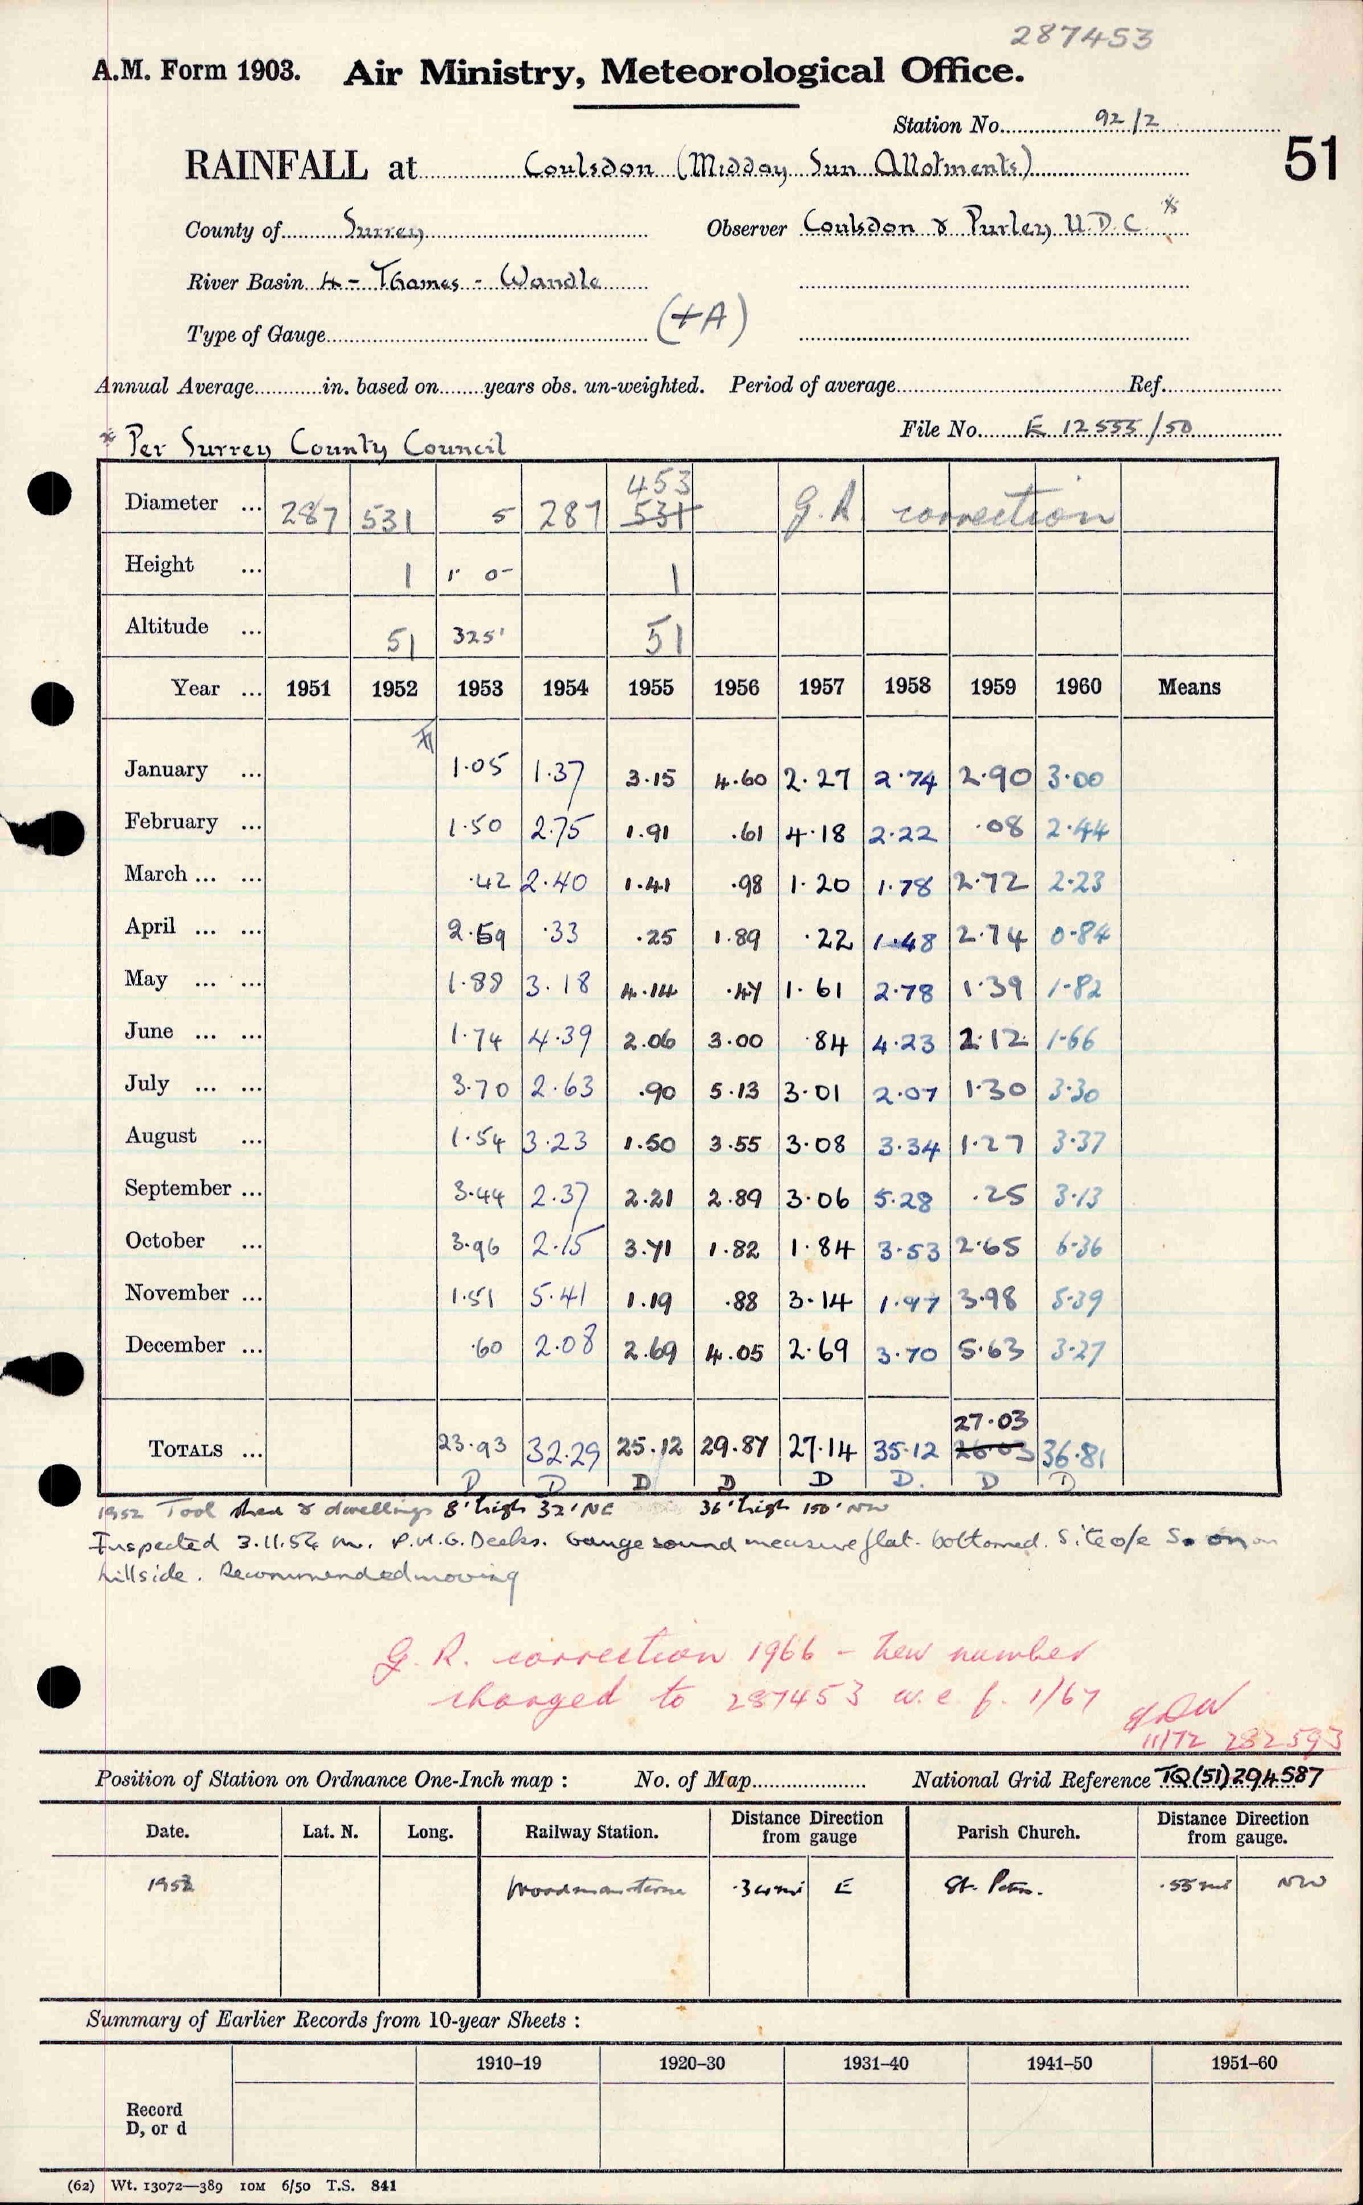 287453
A.M. Form 1903. Air Ministry, Meteorological Office.
Station No. 92/2
51
RAINFALL at Coulsdon (Midday Sun Allotments)
County of Surrey Observer Coulsdon & Purley U.D.C. *
River Basin 4 - Thames - Wandle
Type of Gauge (+A)
Annual Average in. based on years obs. un-weighted. Period of average Ref.
File No. E 12555/50
* Per Surrey County Council
453
Diameter ... 287 531 5 287 531 G.R. correction
Height ... 1 1' 0" 1
Altitude ... 51 325' 51
Year ... 1951 1952 1953 1954 1955 1956 1957 1958 1959 1960 Means
January ... 1.05 1.37 3.15 4.60 2.27 2.74 2.90 3.00
February ... 1.50 2.75 1.91 .61 4.18 2.22 .08 2.44
March ... ... .42 2.40 1.41 .98 1.20 1.78 2.72 2.23
April ... ... 2.59 .33 .25 1.89 .22 1.48 2.74 0.84
May ... ... 1.88 3.18 4.14 .47 1.61 2.78 1.39 1.82
June ... ... 1.74 4.39 2.06 3.00 .84 4.23 2.12 1.66
July ... ... 3.70 2.63 .90 5.13 3.01 2.07 1.30 3.30
August ... 1.54 3.23 1.50 3.55 3.08 3.34 1.27 3.37
September ... 3.44 2.37 2.21 2.89 3.06 5.28 .25 3.13
October ... 3.96 2.15 3.71 1.82 1.84 3.53 2.65 6.36
November ... 1.51 5.41 1.19 .88 3.14 1.97 3.98 5.39
December ... .60 2.08 2.69 4.05 2.69 3.70 5.63 3.27
27.03
TOTALS ... 23.93 32.29 25.12 29.87 27.14 35.12 26.03 36.81
D D D D D D. D D
1952 Tool shed & dwellings 8' high 32' NE 36' high 150' NW
Inspected 3.11.54 Mr. P.H.G. Deeks. Gauge sound measure flat-bottomed. Site o/e S. on
hillside. Recommended moving
G.R. correction 1966 - new number
changed to 287453 w.e.f. 1/67
11/72 282593
Position of Station on Ordnance One-Inch map : No. of Map National Grid Reference TQ(51)294587
Date. Lat. N. Long. Railway Station. Distance from Direction gauge Parish Church. Distance from Direction gauge.
1952 Woodmansterne .34mi E St. Peters. .55mi NW
Summary of Earlier Records from 10-year Sheets :
1910–19 1920–30 1931–40 1941–50 1951–60
Record
D, or d
(62) Wt. 13072—389 10M 6/50 T.S. 841